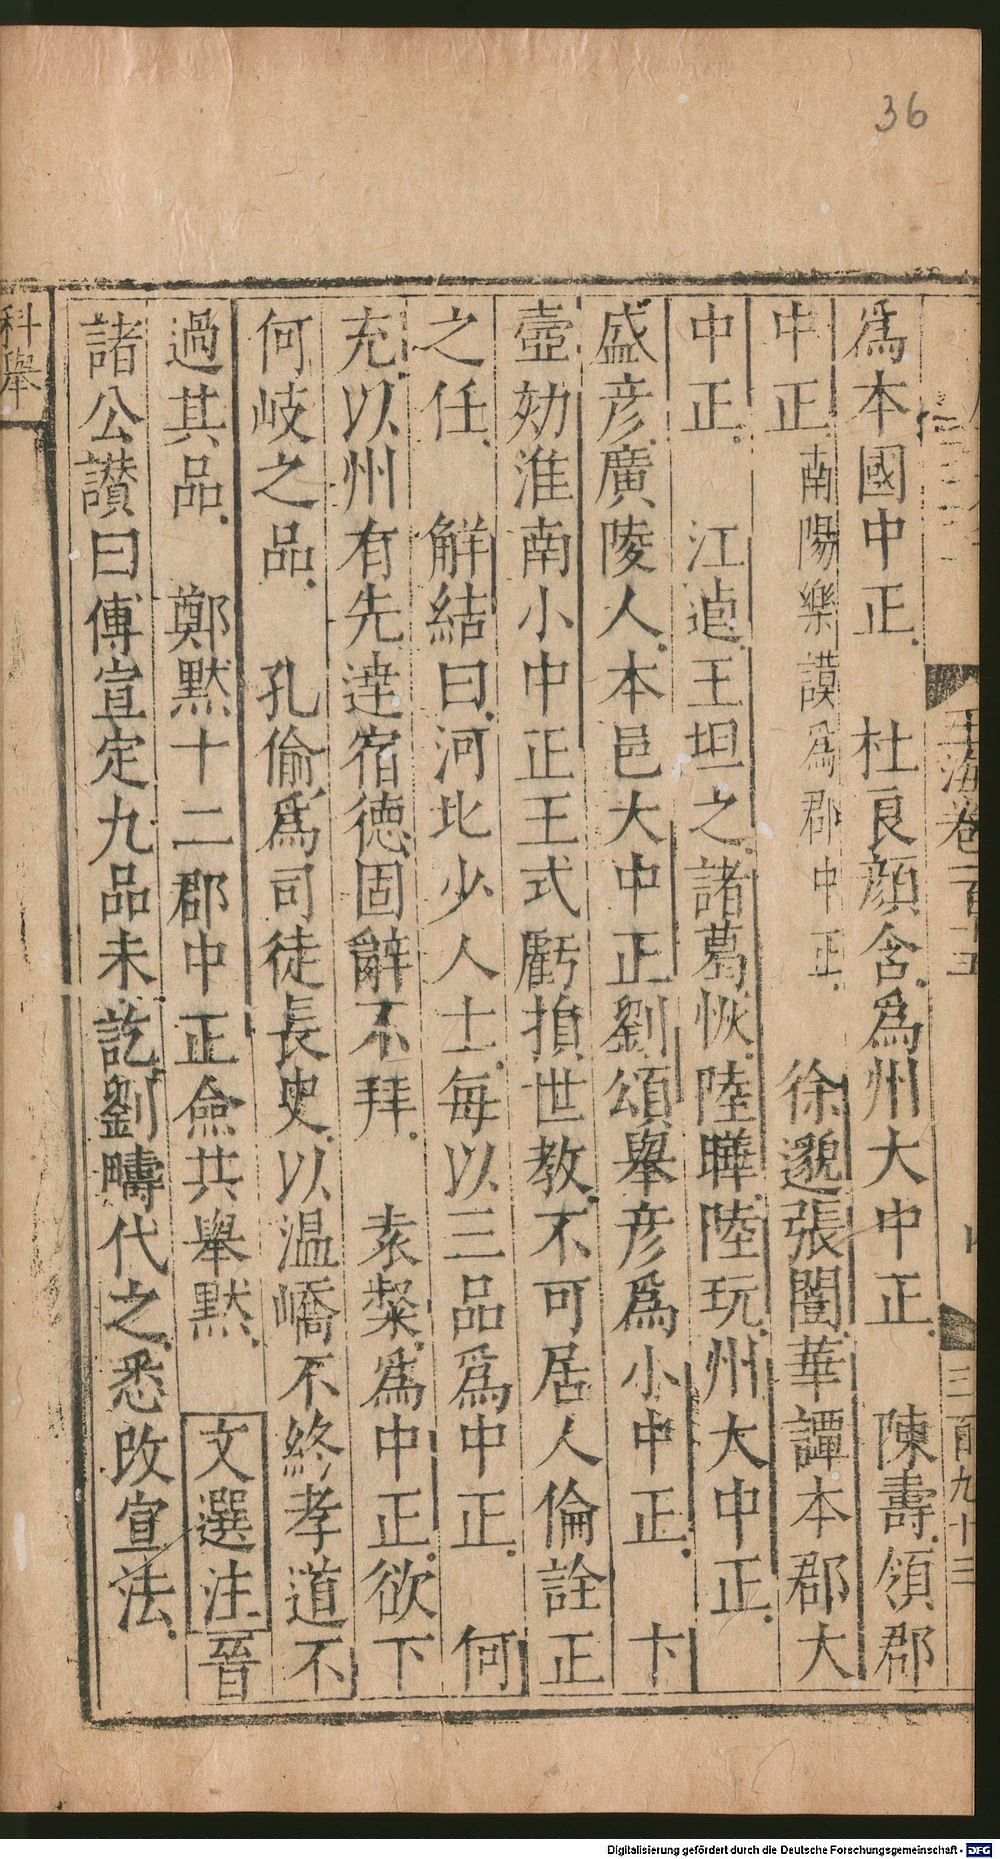 36
玉海卷一百十五
三百九十三
爲本國中正 杜良顔含爲州大中正 陳壽領郡
中正南陽樂謨爲郡中正 徐邈張闓華譚本郡大
中正 江逌王坦之諸葛恢陸曄陸玩州大中正
盛彦廣陵人本邑大中正劉頌舉彦爲小中正 卞
壼劾淮南小中正王式虧損世教不可居人倫詮正
之任 解結曰河北少人士每以三品爲中正 何
充以州有先達宿德固辭不拜 袁粲爲中正欲下
何岐之品 孔倫爲司徒長史以温嶠不終孝道不
過其品 鄭默十二郡中正僉共舉默 文選注晉
諸公讃曰傅宣定九品未訖劉疇代之悉改宣法
科舉
Digitalisierung gefördert durch die Deutsche Forschungsgemeinschaft - DFG